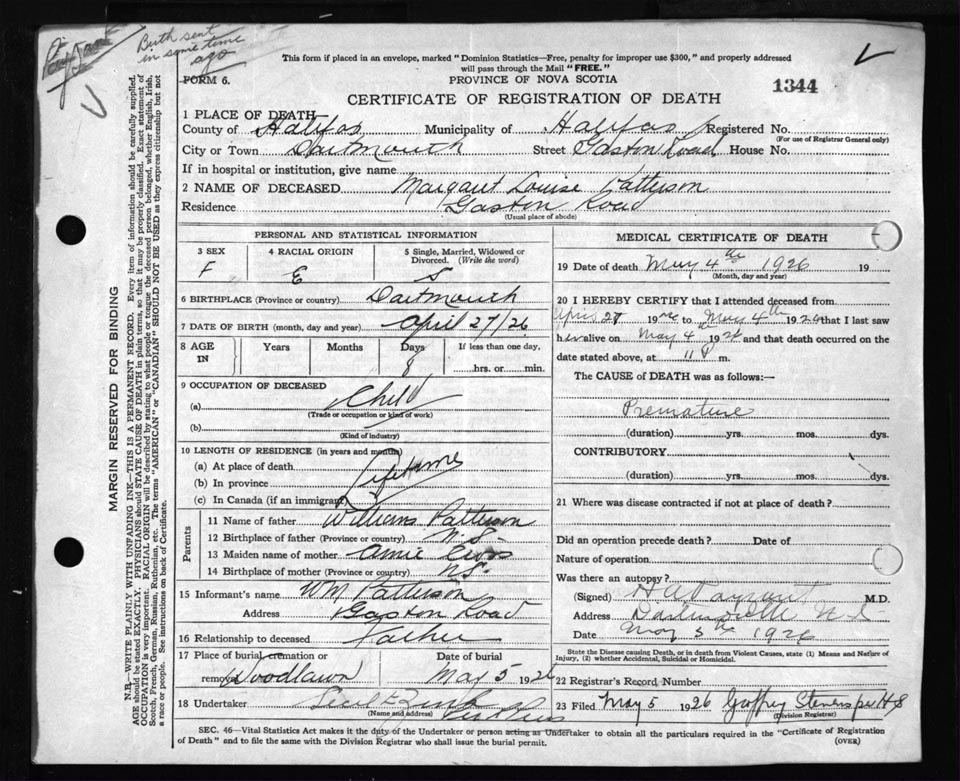 Birth sent
in some time
ago
This form if placed in an envelope, marked "Dominion Statistics—Free, penalty for improper use $300," and properly addressed
will pass through the Mail "FREE."
FORM 6.
PROVINCE OF NOVA SCOTIA
1344
CERTIFICATE OF REGISTRATION OF DEATH
1 PLACE OF DEATH
County of Halifax Municipality of Halifax Registered No.
(For use of Registrar General only)
City or Town Dartmouth Street Gaston Road House No.
If in hospital or institution, give name
2 NAME OF DECEASED Margaret Louise Patterson
Residence Gaston Road
(Usual place of abode)
MARGIN RESERVED FOR BINDING
N.B.—WRITE PLAINLY WITH UNFADING INK—THIS IS A PERMANENT RECORD. Every item of information should be carefully supplied.
AGE should be stated EXACTLY. PHYSICIANS should STATE CAUSE OF DEATH in plain terms, so that it may be properly classified. Exact statement of
OCCUPATION is very important. RACIAL ORIGIN will be described by stating to what people or tongue the deceased person belonged, whether English, Irish,
Scotch, French, German, Russian, Ruthenian, etc. The terms "AMERICAN" or "CANADIAN" SHOULD NOT BE USED as they express citizenship but not
a race or people. See instructions on back of Certificate.
PERSONAL AND STATISTICAL INFORMATION
3 SEX
F
4 RACIAL ORIGIN
E
5 Single, Married, Widowed or
Divorced. (Write the word)
S
6 BIRTHPLACE (Province or country) Dartmouth
7 DATE OF BIRTH (month, day and year) April 27/26
8 AGE
IN
Years
Months
Days
8
If less than one day,
hrs. or min.
9 OCCUPATION OF DECEASED
(a) Child
(Trade or occupation or kind of work)
(b)
(Kind of industry)
10 LENGTH OF RESIDENCE (in years and months)
(a) At place of death
(b) In province
Life time
(c) In Canada (if an immigrant)
Parents
11 Name of father Williams Patterson
12 Birthplace of father (Province or country) N.S.
13 Maiden name of mother Annie
14 Birthplace of mother (Province or country) NS.
15 Informant's name Wm Patterson
Address Gaston Road
16 Relationship to deceased Father
17 Place of burial, cremation or
removal Woodlawn
Date of burial
May 5 1926
18 Undertaker
(Name and address)
MEDICAL CERTIFICATE OF DEATH
19 Date of death May 4th 1926 19
(Month, day and year)
20 I HEREBY CERTIFY that I attended deceased from
April 27 19 to May 4th 1926 that I last saw
her alive on May 4 1926 and that death occurred on
date stated above, at 11 P m.
The CAUSE of DEATH was as follows:
Premature
(duration) yrs. mos. dys.
CONTRIBUTORY
(duration) yrs. mos. dys.
21 Where was disease contracted if not at place of death?
Did an operation precede death? Date of
Nature of operation
Was there an autopsy?
(Signed) H A Payzant M.D.
Address Dartmouth N S
Date May 5th 1926
State the Disease causing Death, or in death from Violent Causes, state (1) Means and Nature of
Injury, (2) whether Accidental, Suicidal or Homicidal.
22 Registrar's Record Number
23 Filed May 5 1926 Godfrey Stevens per H S
(Division Registrar)
SEC. 46—Vital Statistics Act makes it the duty of the Undertaker or person acting as Undertaker to obtain all the particulars required in the "Certificate of Registration
of Death" and to file the same with the Division Registrar who shall issue the burial permit.
(OVER)